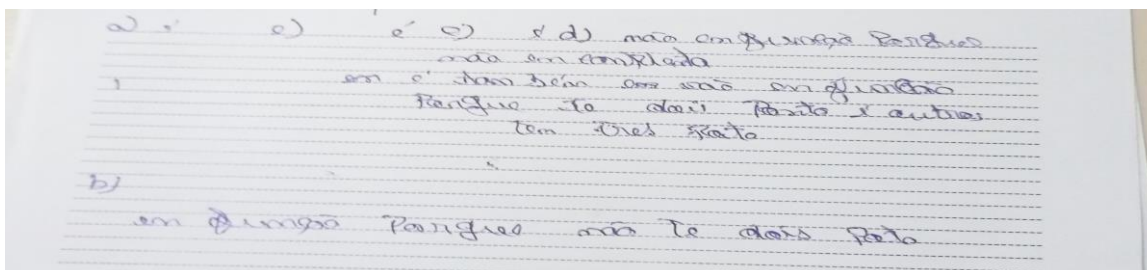 a) e) é c) e d) não em função Porque
não em
em é tam bém em não em função
Porque te dois Ponto e outros
tem tres Ponto
b)
em função Porque não te dois Ponto